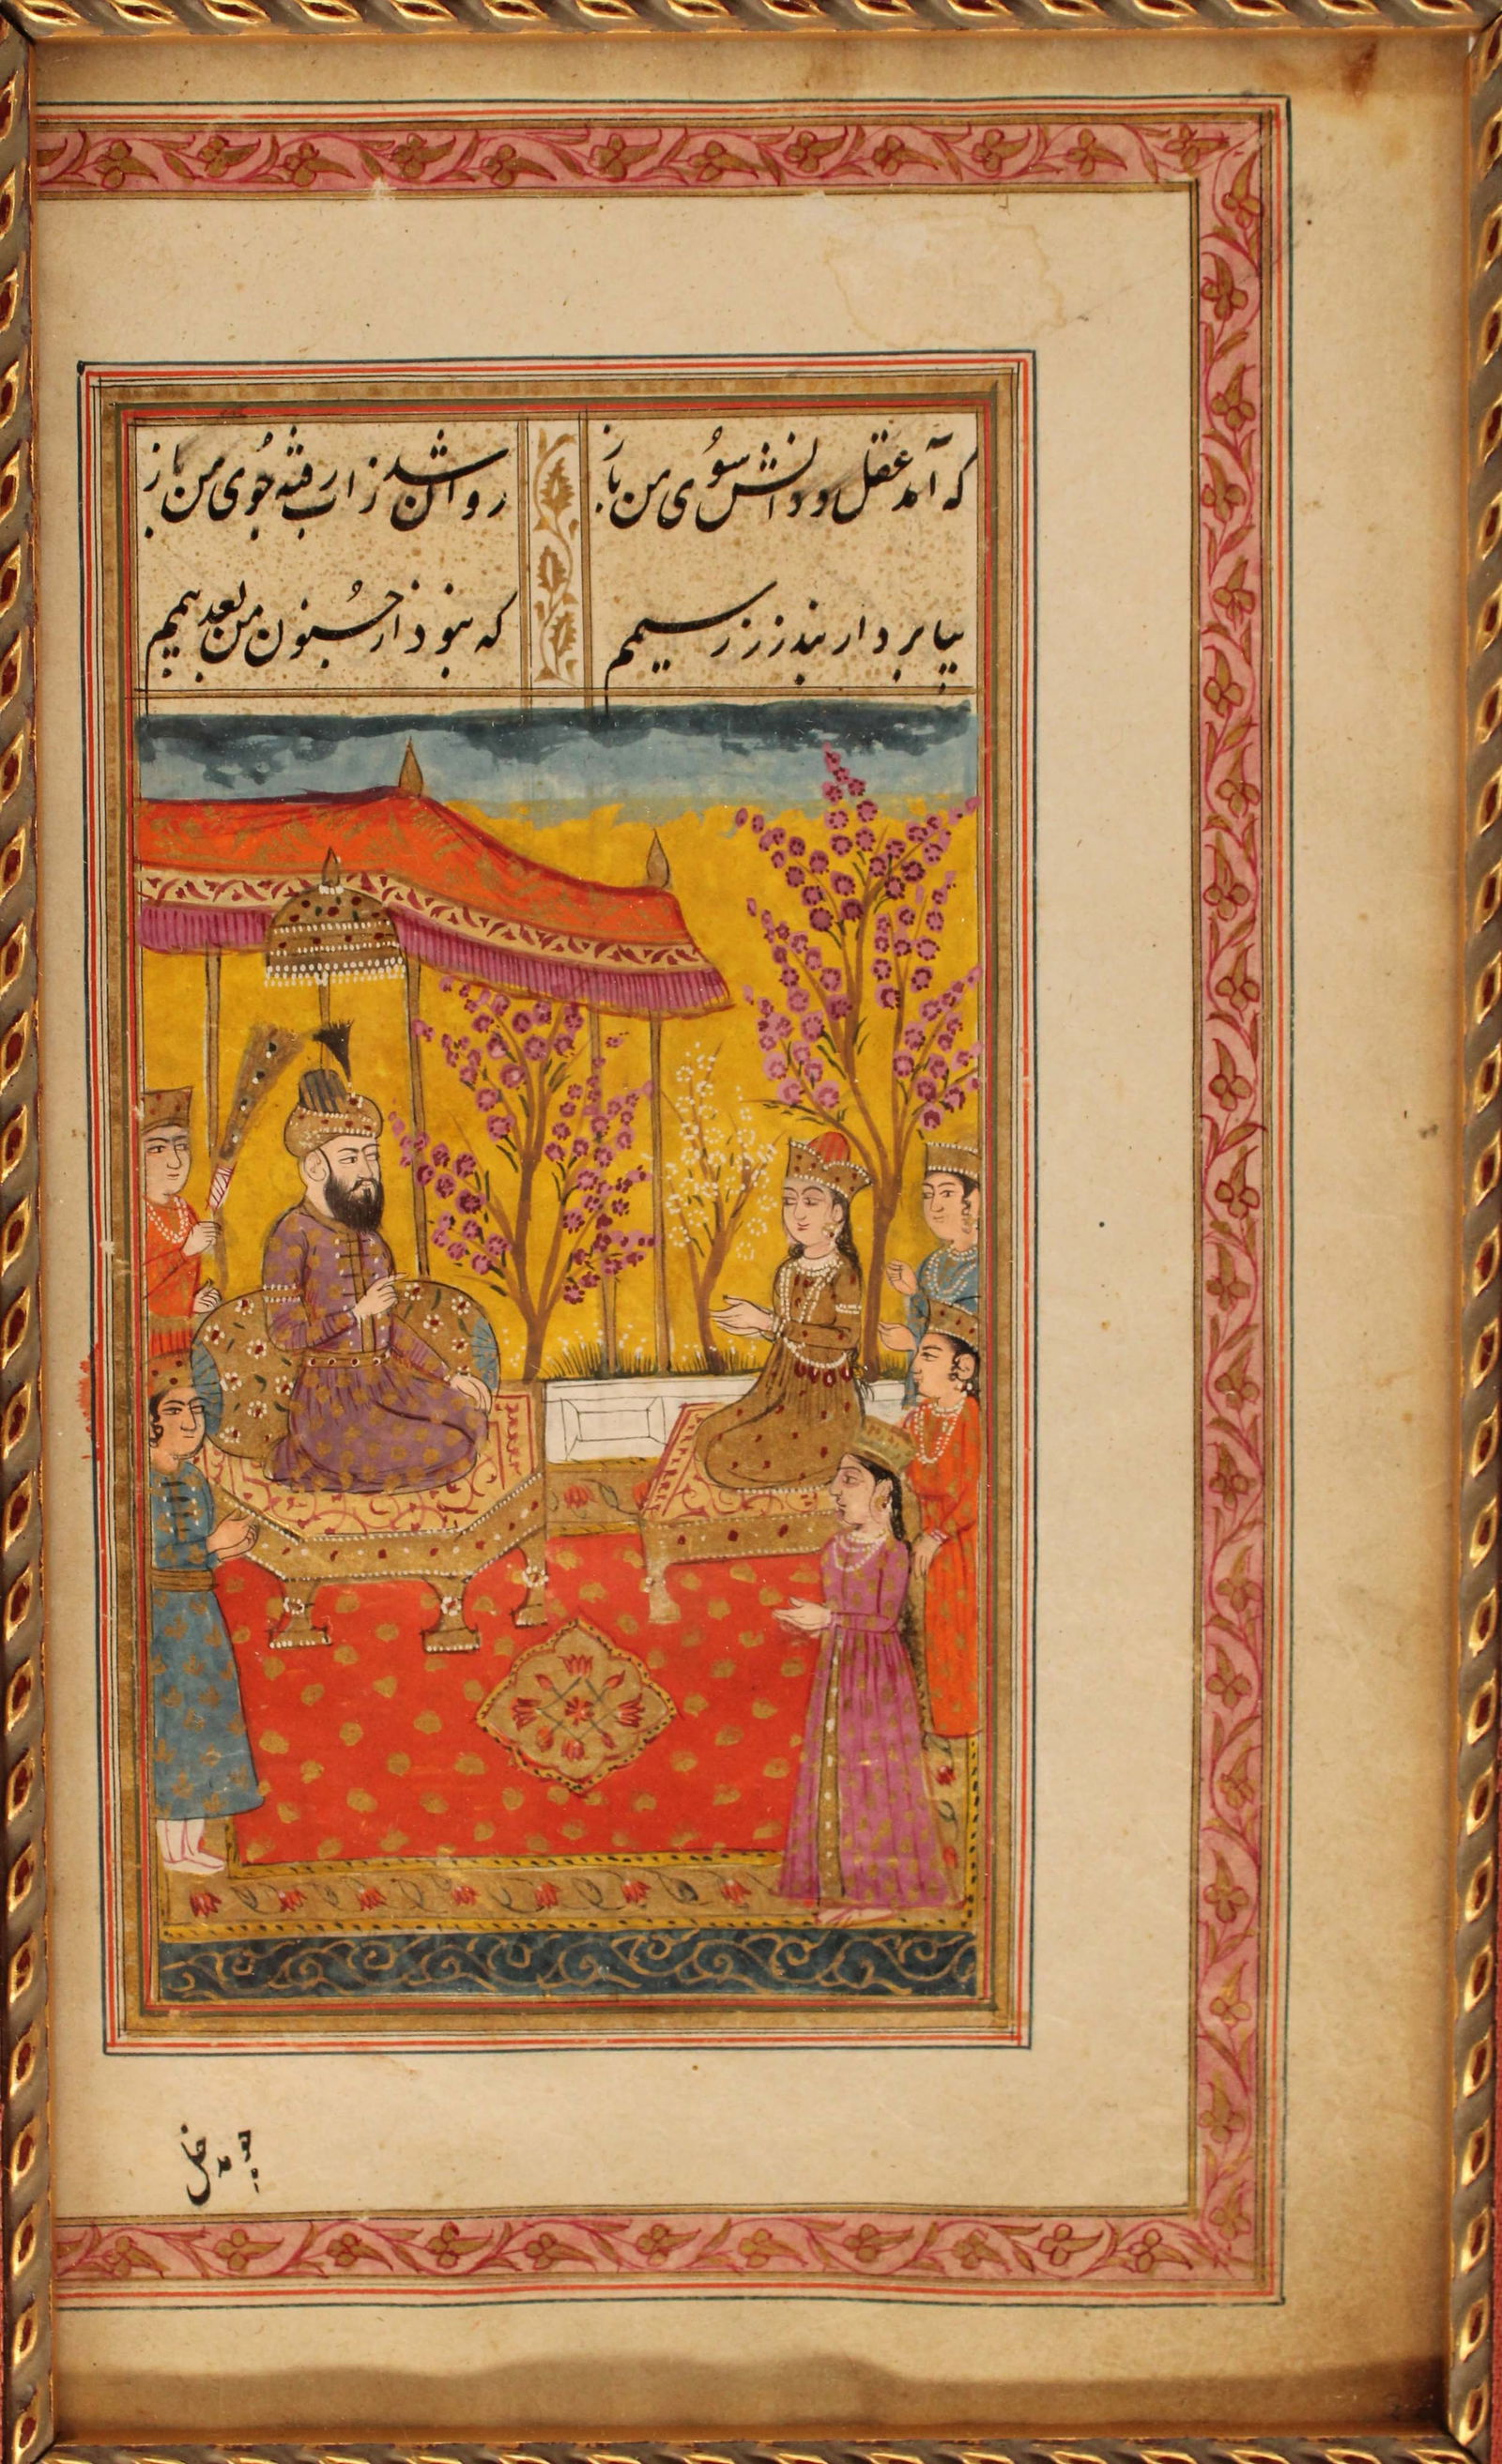 که آمد عقل و دانش سوی من باز
روان شد زاب رفته جوی من باز
بیا بردار بند زر ز سیمم
که نبود از جنون من بعد بیمم